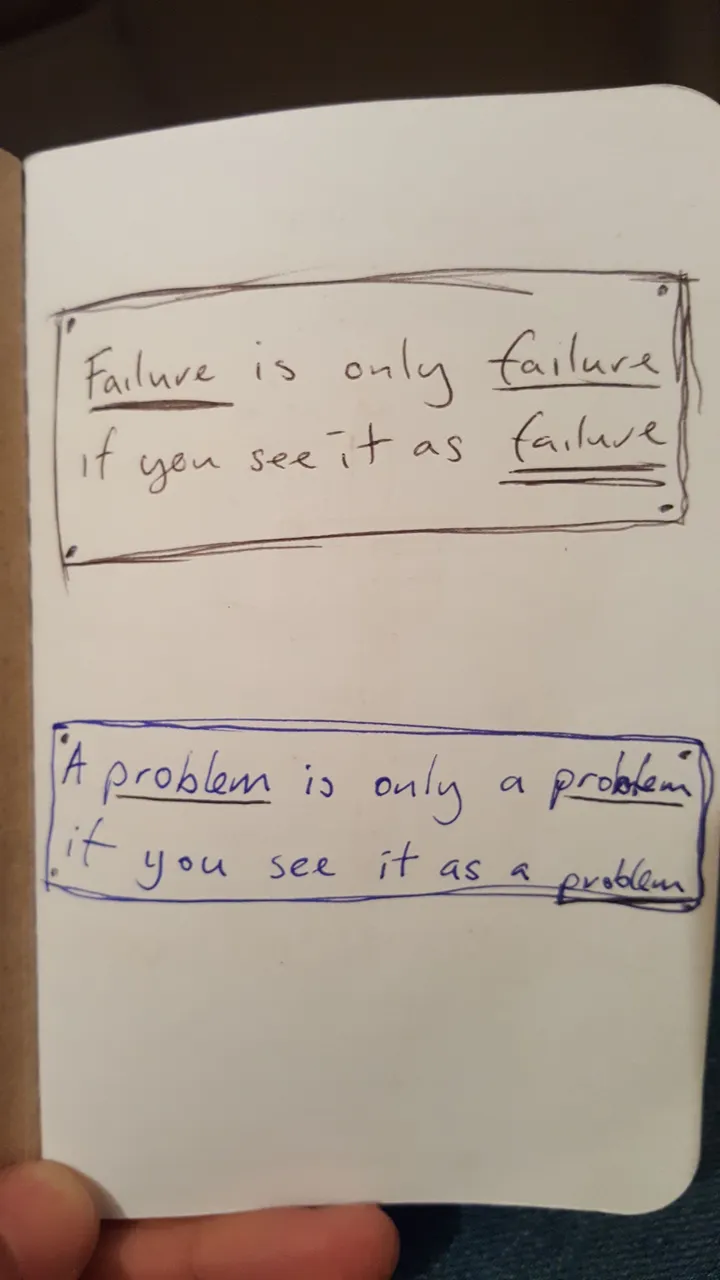 Failure is only failure
if you see it as failure
A problem is only a problem
if you see it as a problem